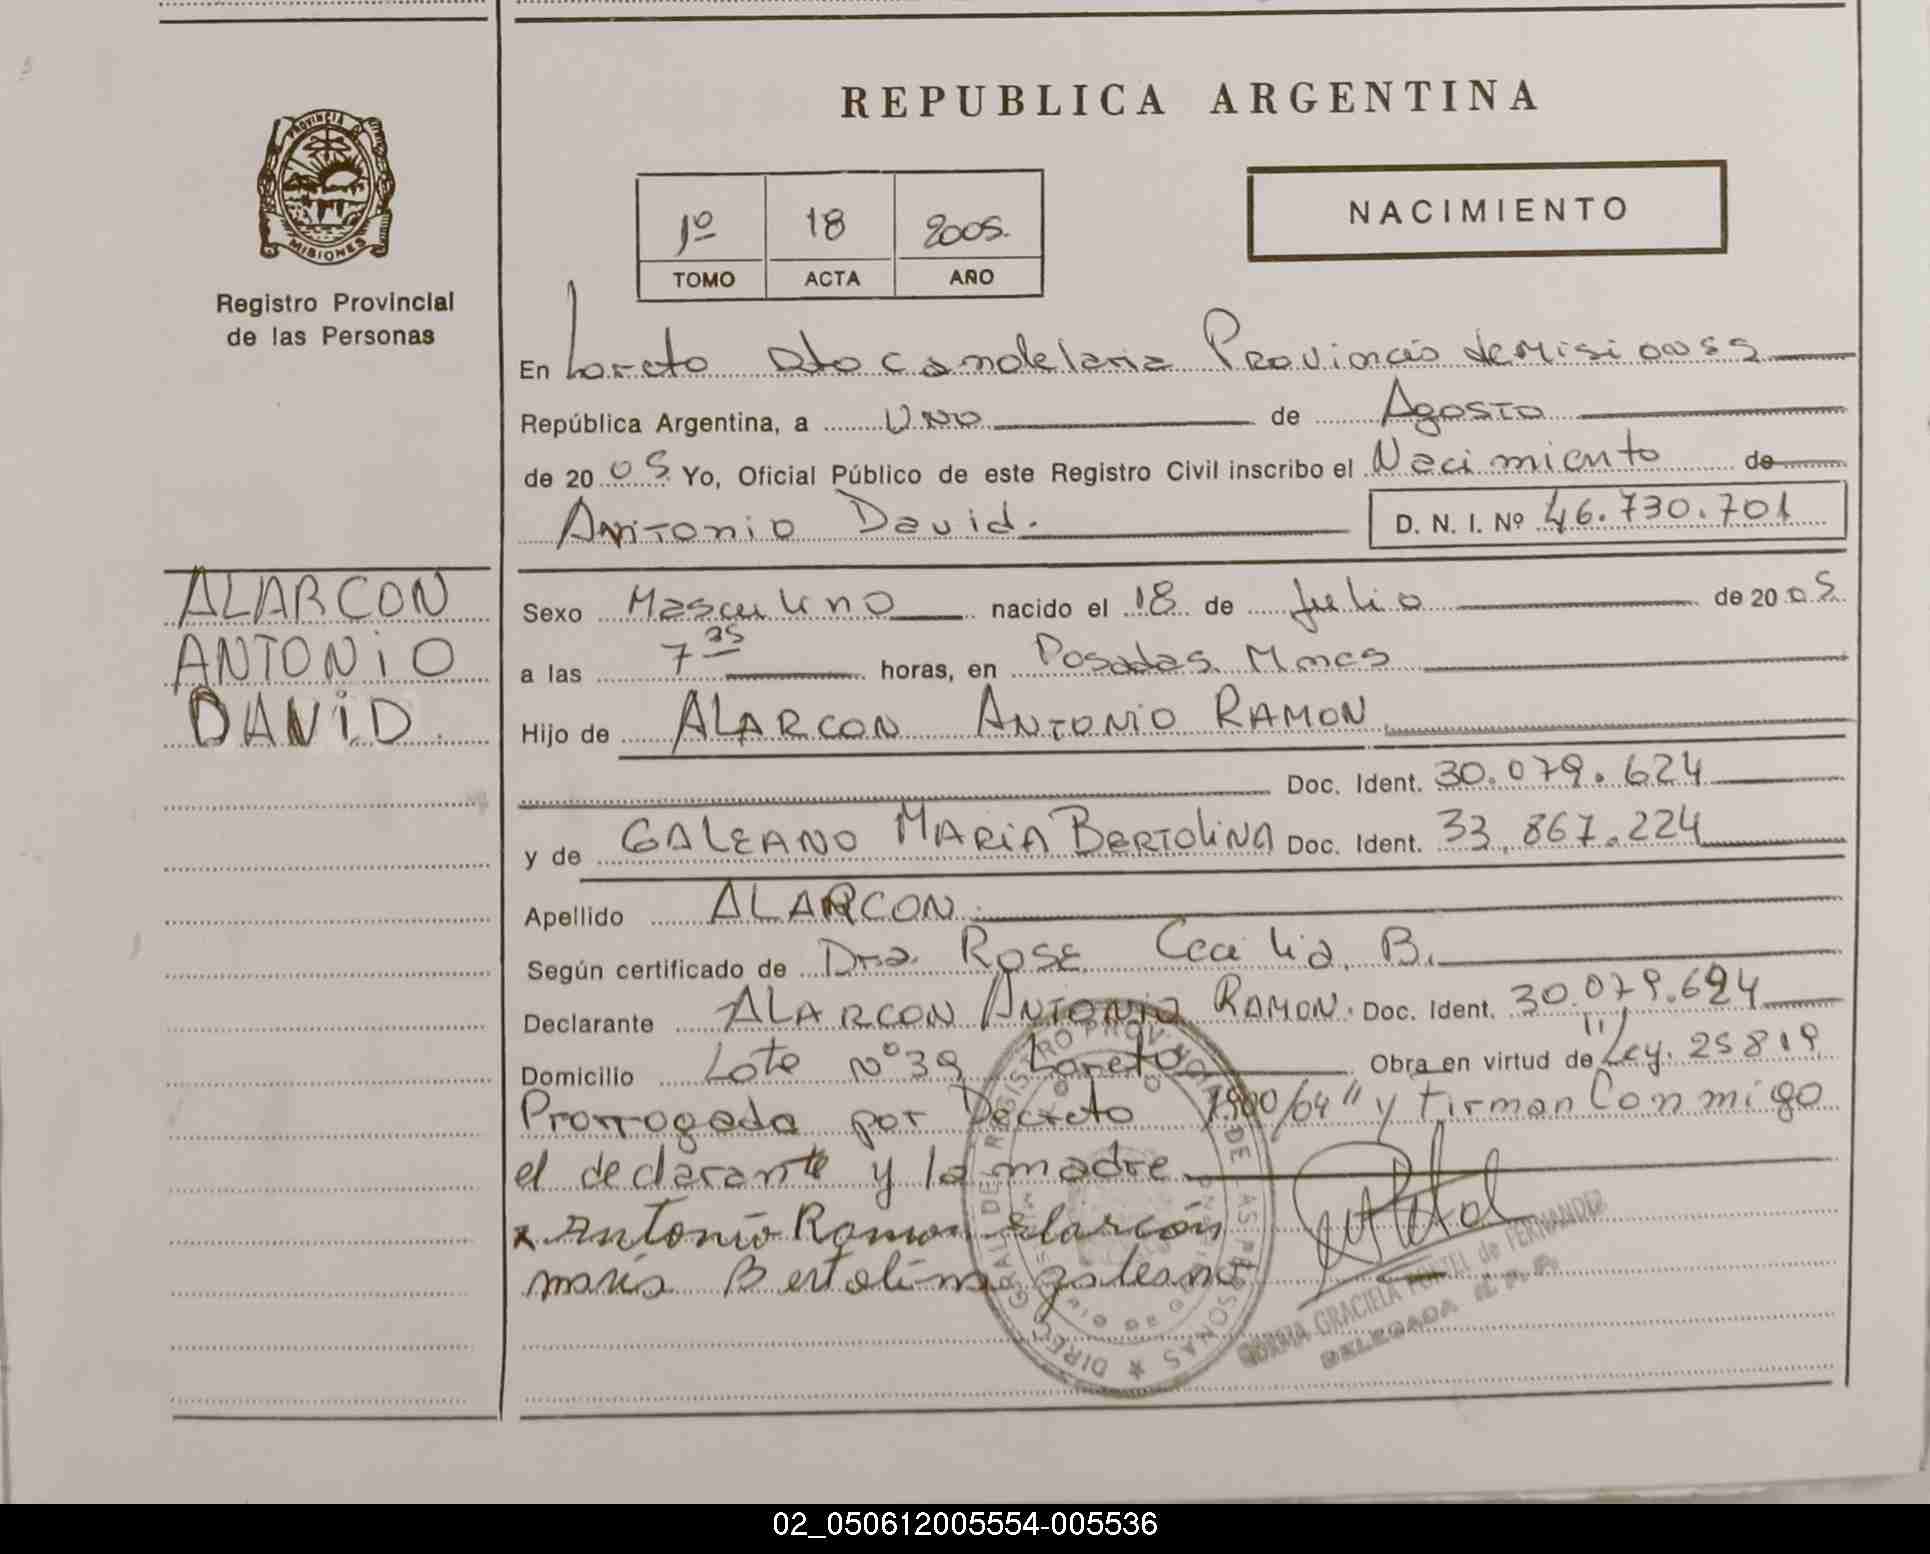 REPUBLICA ARGENTINA
PROVINCIA DE
MISIONES
Registro Provincial
de las Personas
1º 18 2005.
TOMO ACTA AÑO
NACIMIENTO
En Loreto Dto Candelaria Provincia de Misiones
República Argentina, a Uno de Agosto
de 2005 Yo, Oficial Público de este Registro Civil inscribo el Nacimiento de
Antonio David. D. N. I. Nº 46.730.701
ALARCON
ANTONiO
DAViD.
Sexo Masculino nacido el 18 de Julio de 2005
a las 7 35 horas, en Posadas Mnes
Hijo de ALARCON ANTONIO RAMON
Doc. Ident. 30.079.624
y de GALEANO MARIA BERTOLINA Doc. Ident. 33.867.224
Apellido ALARCON.
Según certificado de Dra. Rose Cecilia B.
Declarante ALARCON ANTONIO RAMON. Doc. Ident. 30.079.624
Domicilio Lote Nº 39 Loreto Obra en virtud de "Ley. 25819
Prorrogada por Decreto 1900/04" y firman Conmigo
el declarante y la madre
x Antonio Ramon Alarcón
maria Bertolina galeano
DIREC. GRAL DEL REGISTRO PROVINCIAL DE LAS PERSONAS
GRACIELA de FERNANDEZ
DELEGADA
02_050612005554-005536